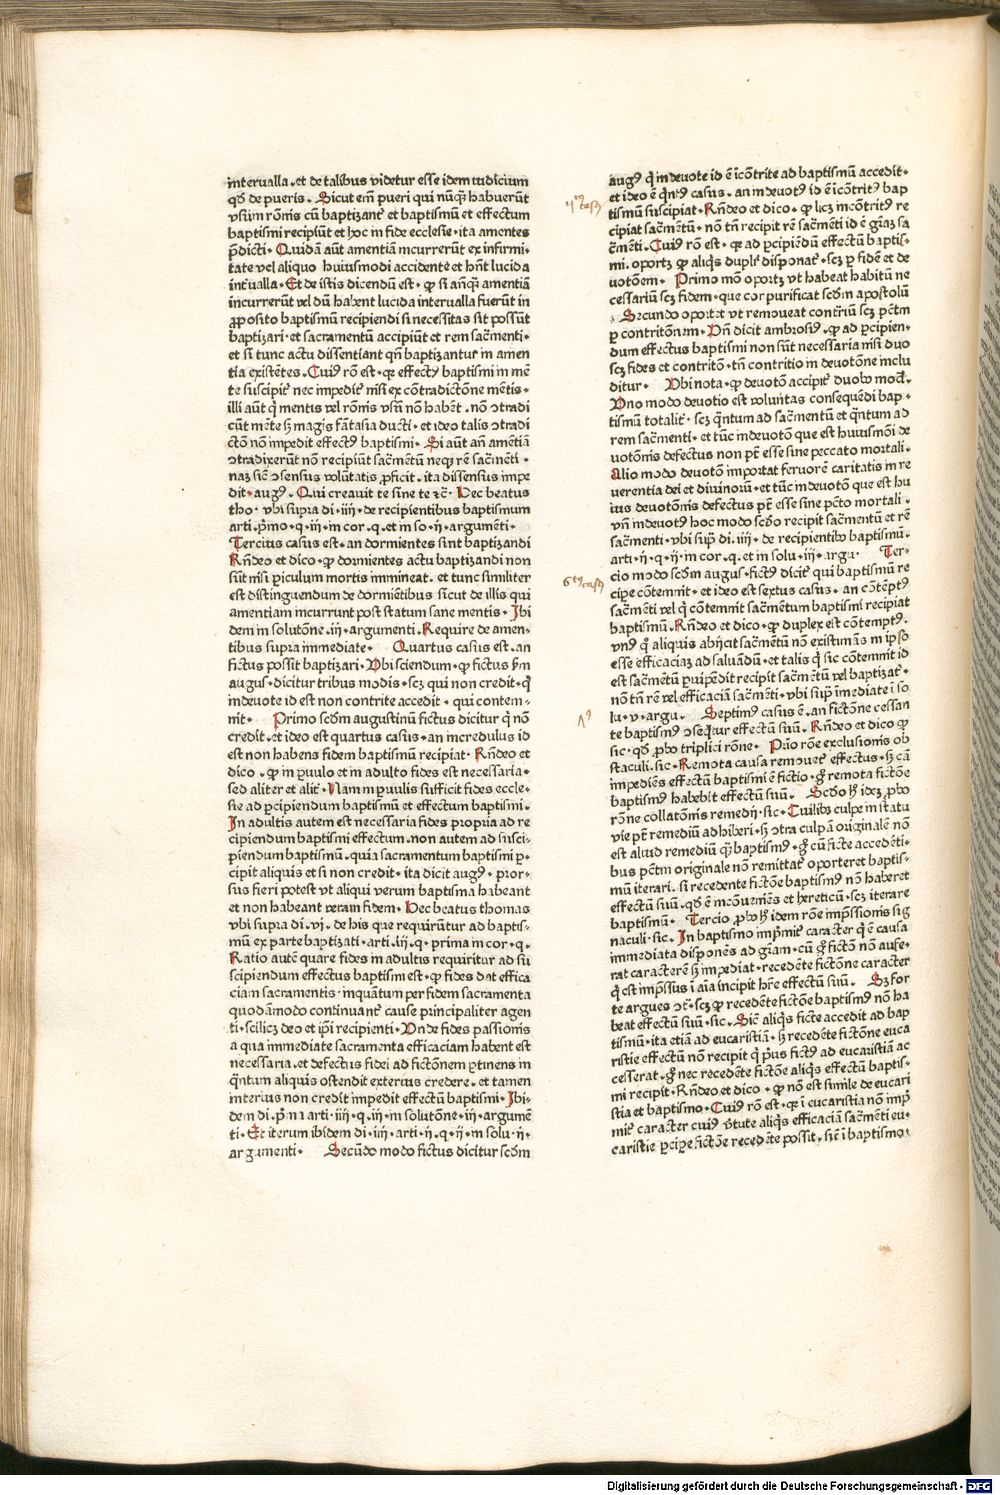 interualla . et de talibus videtur esse idem iudicium
qď de pueris . Sicut em̄ pueri qui nūqȝ habuerūt
vsum rōnis cū baptizanť et baptismū et effectum
baptismi recipiūt et hoc in fide ecclesie · ita amentes
p̄dicti · Quidā aūt amentiā incurrerūt ex infirmi-
tate vel aliquo huiusmodi accidente et hn̄t lucida
inťualla · Et de istis dicendū est · ꝙ si anqȝ̄ amentiā
incurrerūt vel dū habent lucida interualla fuerūt in
ꝓposito baptismū recipiendi si necessitas sit possūt
baptizari · et sacramentū accipiūt et rem sacr̄menti ·
et si tunc actu dissentiant qn̄ baptizantur in amen
tia existētes . Cuiꝰ rō est · qꝛ effectꝰ baptismi in mē
te suscipiť nec impediť nisi ex cōtradictōne mētis ·
illi aūt q̄ mentis vel rōnis vsū nō habēt . nō ↄtradi
cūt mēte sȝ magis fātasia ducti · et ideo talis ↄtradi
ctō nō impedit effectꝰ baptismi · Si aūt an̄ amētiā
ↄtradixerūt nō recipiūt sacr̄mētū neqȝ rē sacr̄mēti ·
naȝ sic̄ ↄsensus volūtatis ꝓficit . ita dissensus impe
dit · augꝰ . Qui creauit te sine te ⁊c̄ · Hec beatus
tho · vbi supra di · iiij · de recipientibus baptismum
arti . p̄mo · q · iij · in cor . q . et in so · ij · argumēti ·
Tercius casus est · an dormientes sint baptizandi
Rn̄deo et dico · ꝙ dormientes actu baptizandi non
sūt nisi ꝑiculum mortis immineat . et tunc similiter
est distinguendum de dormiētibus sicut de illis qui
amentiam incurrunt post statum sane mentis · Ibi
dem in solutōne . iij · argumenti . Require de amen-
tibus supra immediate · Quartus casus est . an
fictus possit baptizari . Vbi sciendum · ꝙ fictus ẜm
augus · dicitur tribus modis · scȝ qui non credit · q̇
indeuote id est non contrite accedit · qui contem-
nit · Primo scd̄m augustinū fictus dicitur q̇ nō
credit . et ideo est quartus casus · an incredulus id
est non habens fidem baptismū recipiat · Rn̄deo et
dico · ꝙ in ꝑuulo et in adulto fides est necessaria ·
sed aliter et aliť · Nam in ꝑuulis sufficit fides eccle-
sie ad ꝑcipiendum baptismū et effectum baptismi .
In adultis autem est necessaria fides propria ad re
cipiendum baptismi effectum . non autem ad susci-
piendum baptismū . quia sacramentum baptismi ꝑ-
cipit aliquis et si non credit · ita dicit augꝰ · prior-
sus fieri potest vt aliqui verum baptisma habeant
et non habeant veram fidem · Hec beatus thomas
vbi supra di . vj . de his que requirūtur ad baptis-
mū ex parte baptizati · arti . iij . q · prima in cor · q ·
Ratio autē quare fides in adultis requiritur ad su
scipiendum effectus baptismi est · ꝙ fides dat effica
ciam sacramentis · inquātum per fidem sacramenta
quodāmodo continuanť cause principaliter agen
ti · scilicȝ deo et ip̄i recipienti · Vnde fides passionis
a qua immediate sacramenta efficaciam habent est
necessaria . et defectus fidei ad fictōnem ꝑtinens in
q̄ntum aliquis ostendit exterius credere . et tamen
interius non credit impedit effectū baptismi · Ibi-
dem di . p̄ma arti · iiij · q . iij · in solutōne · iij · argumē
ti · Et iterum ibidem di · iiij · arti · ij . q · ij · in solu · ij ·
argumenti · Secūdo modo fictus dicitur scd̄m
augꝰ q̇ indeuote id ē icōtrite ad baptismū accedit ·
et ideo ē q̇ntꝰ casus . an indeuotꝰ id ē icōtritꝰ bap
tismū suscipiat · Rn̄deo et dico . ꝙ licȝ incōtritꝰ re
cipiat sacr̄mētū · nō tn̄ recipit rē sacr̄mēti id ē gr̄aȝ sa
cr̄mēti . Cuiꝰ rō est · qꝛ ad ꝑcipiēdū effectū baptis-
mi . oportȝ ꝙ aliqͥs dupľr disponať · scȝ ꝑ fidē et de
uotōem · Primo mō oportȝ vt habeat habitū ne
cessariū scȝ fidem · que cor purificat scd̄m apostolū
Secundo oportet vt remoueat cont̄riū scȝ pctm̄
ꝑ contritōnem · Vn̄ dicit ambrosiꝰ . ꝙ ad ꝑcipien-
dum effectus baptismi non sūt necessaria nisi duo
scȝ fides et contritō · tn̄ contritio in deuotōne inclu
ditur · Vbi nota · ꝙ deuotō accipiť duobꝰ mod̄ .
Vno modo deuotio est voluntas consequēdi bap-
tismū totaliť · scȝ q̄ntum ad sacr̄mentū et q̄ntum ad
rem sacr̄menti · et tūc indeuotō que est huiusmōi de
uotōnis defectus non pt̄ esse sine peccato mortali .
Alio modo deuotō importat feruorē caritatis in re
uerentia dei et diuinorū · et tūc indeuotō que est hu
ius deuotōnis defectus pt̄ esse sine pctō mortali ·
vn̄ indeuotꝰ hoc modo scd̄o recipit sacr̄mentū et rē
sacr̄menti · vbi supͣ di . iiij · de recipientibꝰ baptismū .
arti · ij · q · ij · in cor . q . et in solu · iij · argu · Ter-
cio modo scd̄m augus · fictꝰ diciť qui baptismū re
cipe cōtemnit · et ideo est sextus casus · an cōtēptꝰ
sacr̄mēti vel q̇ cōtemnit sacr̄mētum baptismi recipiat
baptismū . Rn̄deo et dico · ꝙ duplex est contemptꝰ .
vnꝰ q̇ aliquis abijcit sacr̄mētū nō existimās in ipso
esse efficaciaȝ ad saluādū · et talis q̇ sic cōtemnit id
est sacr̄mētū ꝑuipēdit recipit sacr̄mētū vel baptizať ·
nō tn̄ rē vel efficaciā sacr̄mēti · vbi supͣ īmediate ī so
lu · v · argu . Septimꝰ casus ē . an fictōne cessan
te baptismꝰ ↄseq̇tur effectū suū . Rn̄deo et dico ꝙ
sic · qď ꝓbo triplici rōne · Prīo rōe exclusionis ob
staculi . sic · Remota causa remoueť effectus · sȝ cā
impediēs effectū baptismi ē fictio · g̊ remota fictōe
baptismꝰ habebit effectū suū . Scd̄o hͦ ideȝ ꝓbo
rōne collatōnis remedij · sic · Cuiliбȝ culpe in statu
vie pt̄ remediū adhiberi · sȝ ↄtra culpā originalē nō
est aliud remediū qȝ̄ baptismꝰ · g̊ cū ficte accedēti-
bus pctm̄ originale nō remittať oporteret baptis-
mū iterari . si recedente fictōe baptismꝰ nō haberet
effectū suū . qď ē incōueniēs et hereticū · scȝ iterare
baptismū · Tercio ꝓbo hͦ idem rōne imp̄ssionis sig
naculi · sic . In baptismo imp̄miť caracter q̇ ē causa
immediata disponēs ad gr̄am · cū g̊ fictō nō aufe-
rat caracterē sȝ impediat · recedēte fictōne caracter
q̇ est imp̄ssus ī aīa incipit hr̄e effectū suū . Sȝ for
te argues ↄͭ · scȝ ꝙ recedēte fictōe baptismꝰ nō ha
beat effectū suū · sic . Sic̄ aliqͥs ficte accedit ad bap
tismū · ita etiā ad eucaristiā · sȝ recedēte fictōne euca
ristie effectū nō recipit q̇ pͥus fictꝰ ad eucaristiā ac
cesserat . g̊ nec recedēte fictōe aliqͥs effectū baptis-
mi recipit · Rn̄deo et dico · ꝙ nō est simile de eucari
stia et baptismo · Cuiꝰ rō est · qꝛ ī eucaristia nō imp̄
miť caracter cuiꝰ v̇tute aliqͥs efficaciā sacr̄mēti eu-
caristie ꝑcipe fictōe recedēte possit . sic̄ ī baptismo ·
6tꝰ casꝰ
Digitalisierung gefördert durch die Deutsche Forschungsgemeinschaft - DFG